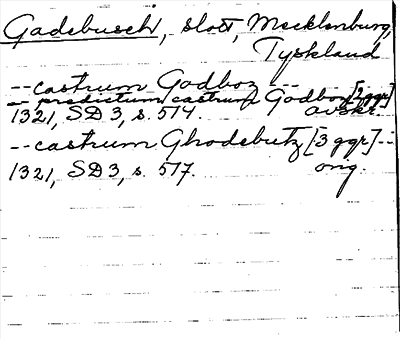 Gadebusch, slott, Mecklenburg,
Tyskland
-- castrum Godboz --
-- predictum castrum Godboz [2 ggr]
1321, SD 3, s. 514. avskr.
-- castrum Ghodebutz [3 ggr] --
1321, SD 3, s. 517. orig.